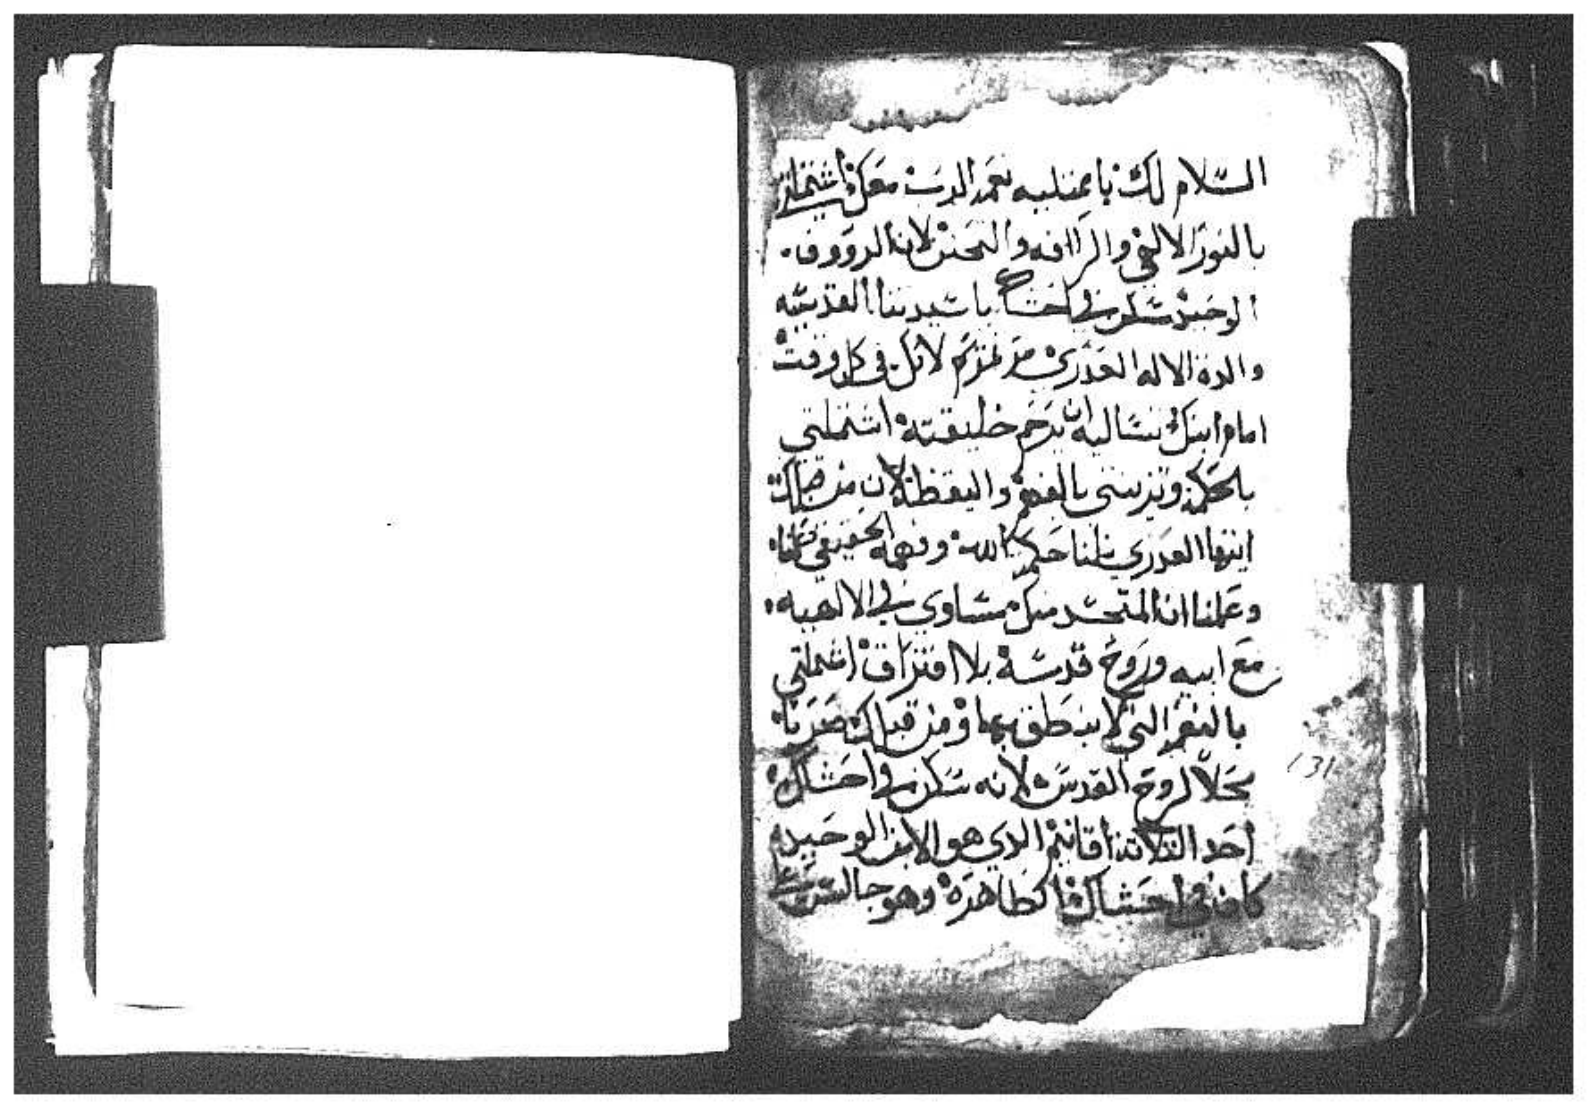 السّلام لك يا ممتليه نعمه الرب معك اشتملتي
بالنور الالهي والرافه والتحنن لان الرووف
الوحيد سكن في احشاكي يا سيدتنا القديسه
والدة الاله العدرى مريم لاتزل في كل وقت
امام ابنك نساليه ان يرحم خليقته اشتملتي
بالحكمه وتزينتي بالفهم واليقظه لان من قبلك
ايتها العدري نلنا حكمه الله وفهمه الحقيقي
وعلمنا ان المتجسد منك مساوي في الالهيه
مع ابيه وروح قدسه بلا افتراق اشملتي
بالنعم التي لا ينطق بها ومن قبلك صرنا
محلاً لروح القدس لانه سكن في احشاك
احد التلاتة اقانيم الدي هو الابن الوحيد
كان في احشاك الطاهره وهو جالس مع
131